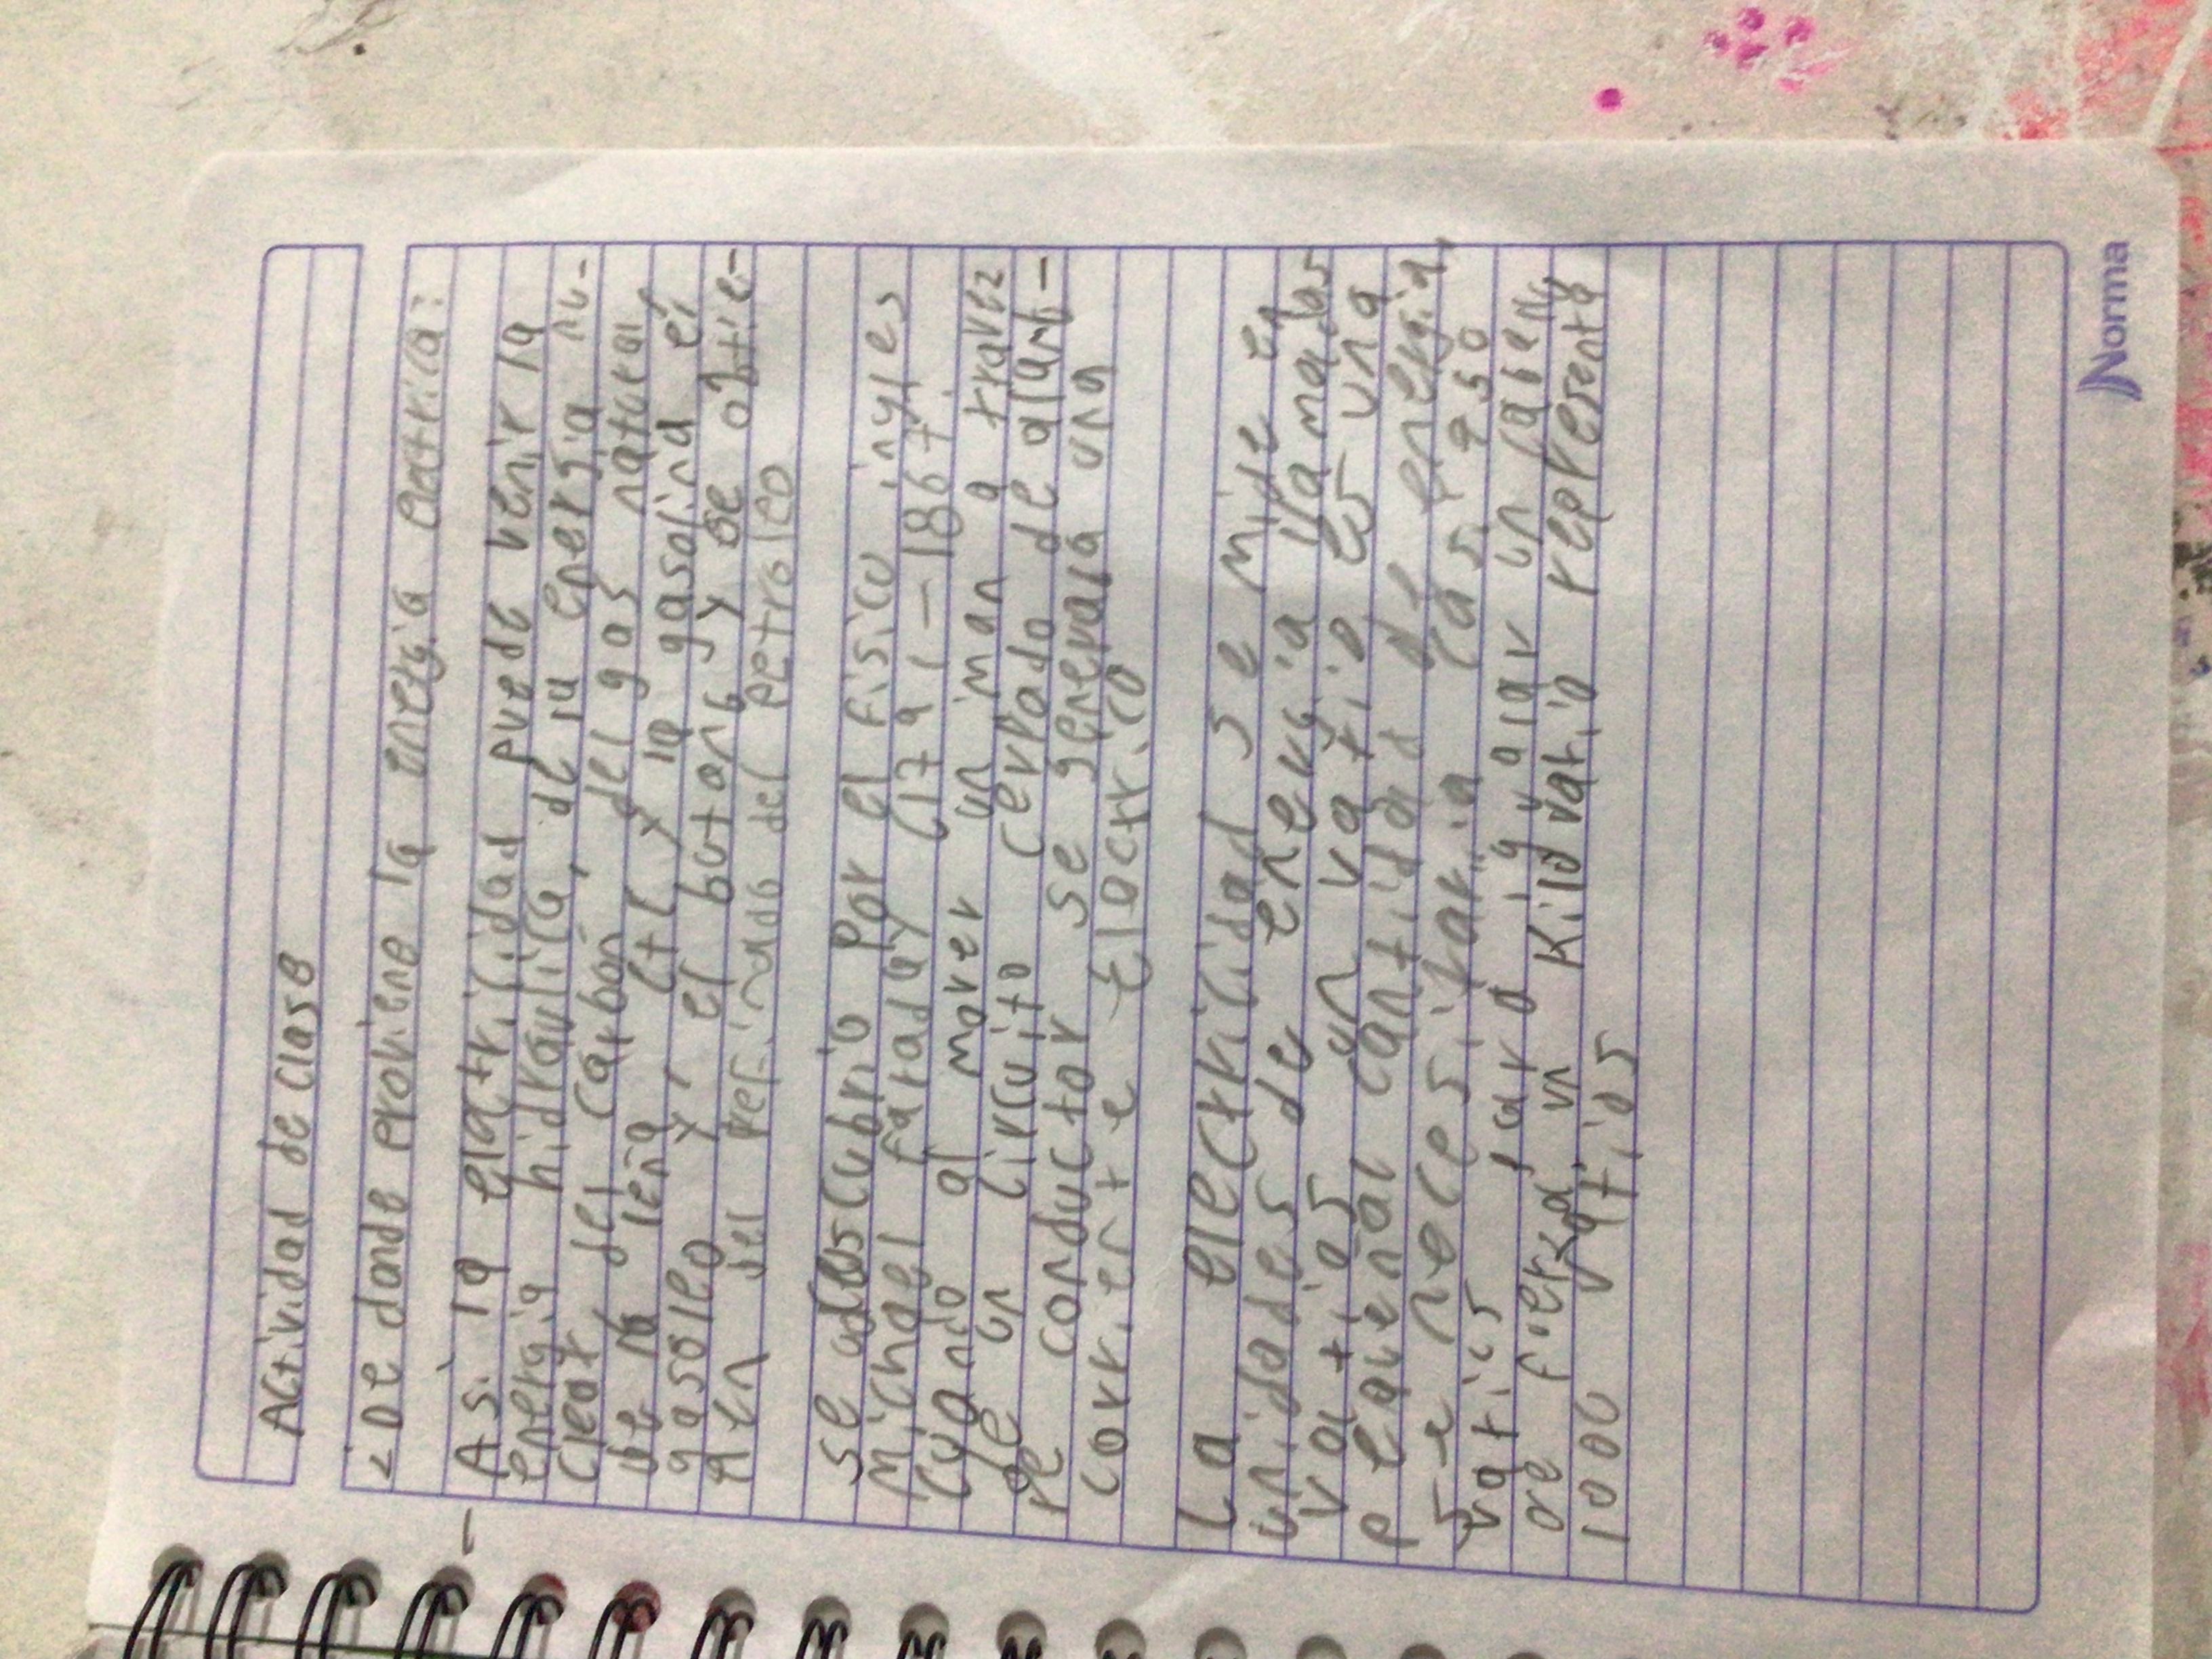 Actividad de clase
¿De donde proviene la energia electrica:
- Asi la elactricidad puede venir la
energia hidraulica, de la energia nu-
clear del carbon, del gas natural,
de la leña etc, y la gasolina el
gasoleo y, el butano y se obtie-
nen del refinado del petroleo
se descubrio por el fisico ingles
Michael Faraday (1791-1867)
cuando al mover un iman a travez
de un circuito cerrado de alamb-
re conductor se generaba una
corriente Elactrico
La electricidad se mide en
unidades de energia llamadas
vatios un vatio es una
pequeña cantidad de energia
se necesitaria casi 750
vatios para igualar un caballo
de fuerza un Kilovatio representa
1000 vatios
Norma